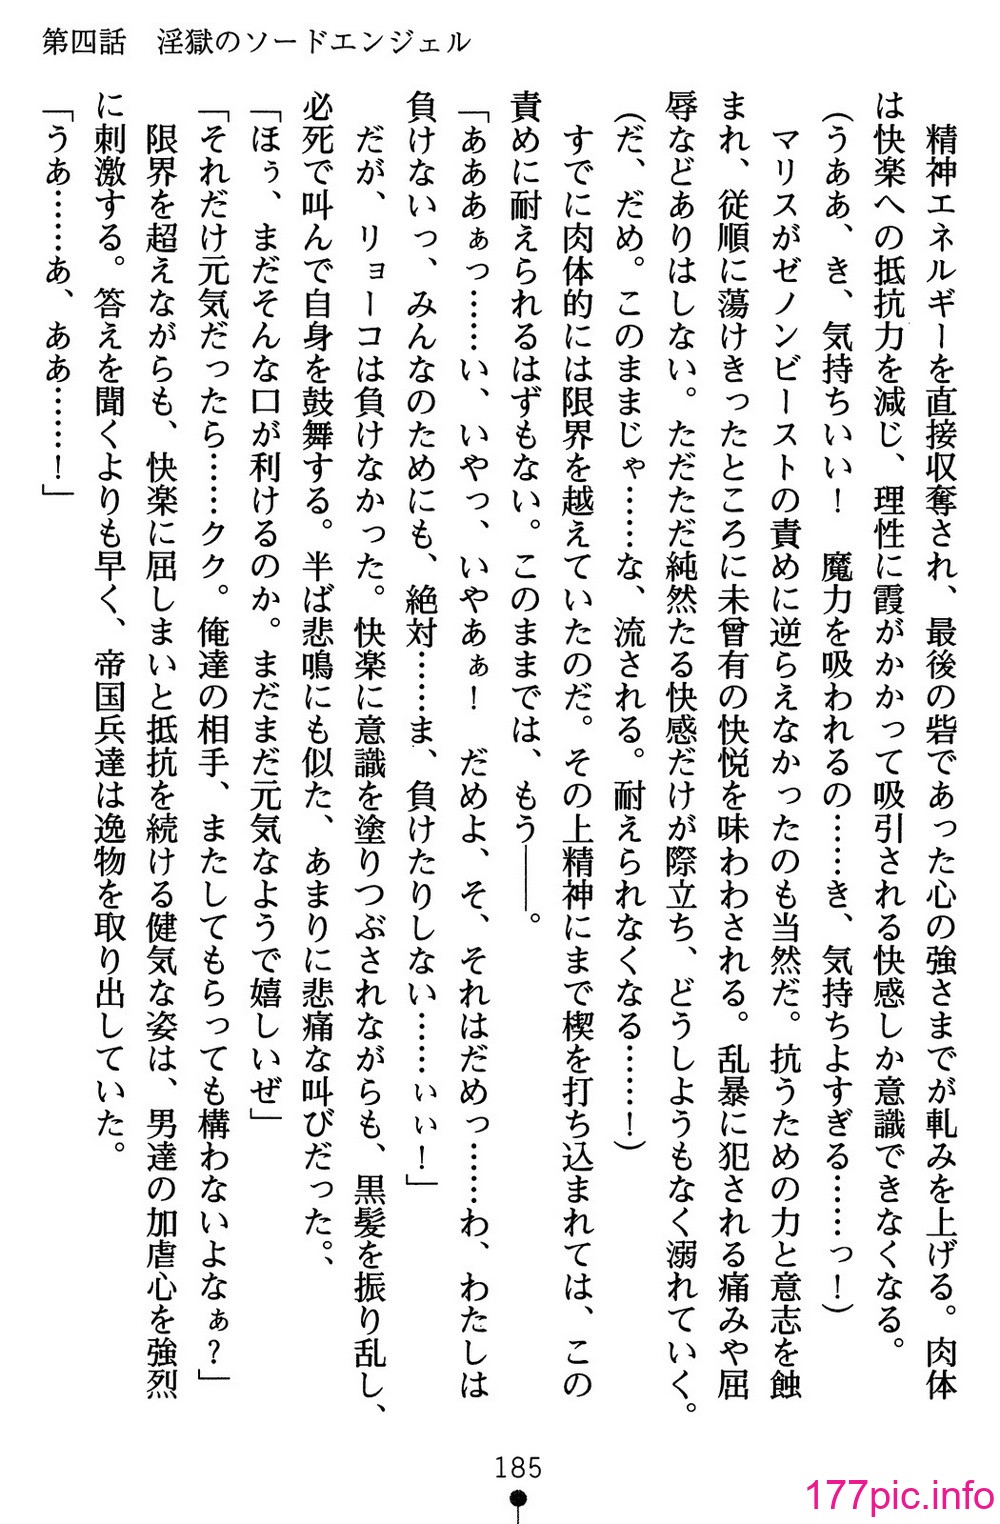 第四話　淫獄のソードエンジェル
　精神エネルギーを直接収奪され、最後の砦であった心の強さまでが軋みを上げる。肉体
は快楽への抵抗力を減じ、理性に霞がかかって吸引される快感しか意識できなくなる。
（うああ、き、気持ちいい！　魔力を吸われるの……き、気持ちよすぎる……っ！）
　マリスがゼノンビーストの責めに逆らえなかったのも当然だ。抗うための力と意志を蝕
まれ、従順に蕩けきったところに未曾有の快悦を味わわされる。乱暴に犯される痛みや屈
辱などありはしない。ただただ純然たる快感だけが際立ち、どうしようもなく溺れていく。
（だ、だめ。このままじゃ……な、流される。耐えられなくなる……！）
　すでに肉体的には限界を越えていたのだ。その上精神にまで楔を打ち込まれては、この
責めに耐えられるはずもない。このままでは、もう――。
「あああぁっ……い、いやっ、いやあぁ！　だめよ、そ、それはだめっ……わ、わたしは
負けないっ、みんなのためにも、絶対……ま、負けたりしない……ぃぃ！」
　だが、リョーコは負けなかった。快楽に意識を塗りつぶされながらも、黒髪を振り乱し、
必死で叫んで自身を鼓舞する。半ば悲鳴にも似た、あまりに悲痛な叫びだった。、
「ほぅ、まだそんな口が利けるのか。まだまだ元気なようで嬉しいぜ」
「それだけ元気だったら……クク。俺達の相手、またしてもらっても構わないよなぁ？」
　限界を超えながらも、快楽に屈しまいと抵抗を続ける健気な姿は、男達の加虐心を強烈
に刺激する。答えを聞くよりも早く、帝国兵達は逸物を取り出していた。
「うあ……あ、ああ……！」
185
177pic.info